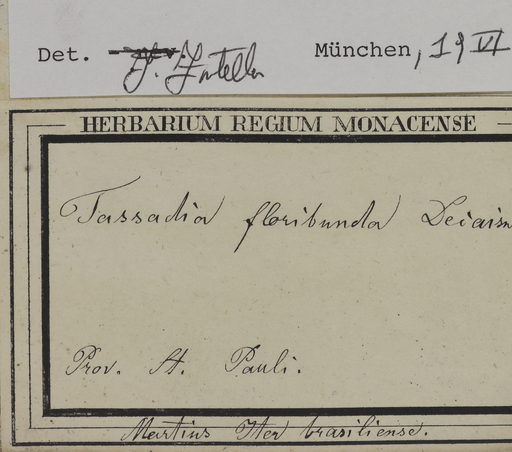 Det. J. Fontella München, 19 VI
HERBARIUM REGIUM MONACENSE
Tassadia floribunda Decaisn
Prov. St. Pauli.
Martius Iter brasiliense.